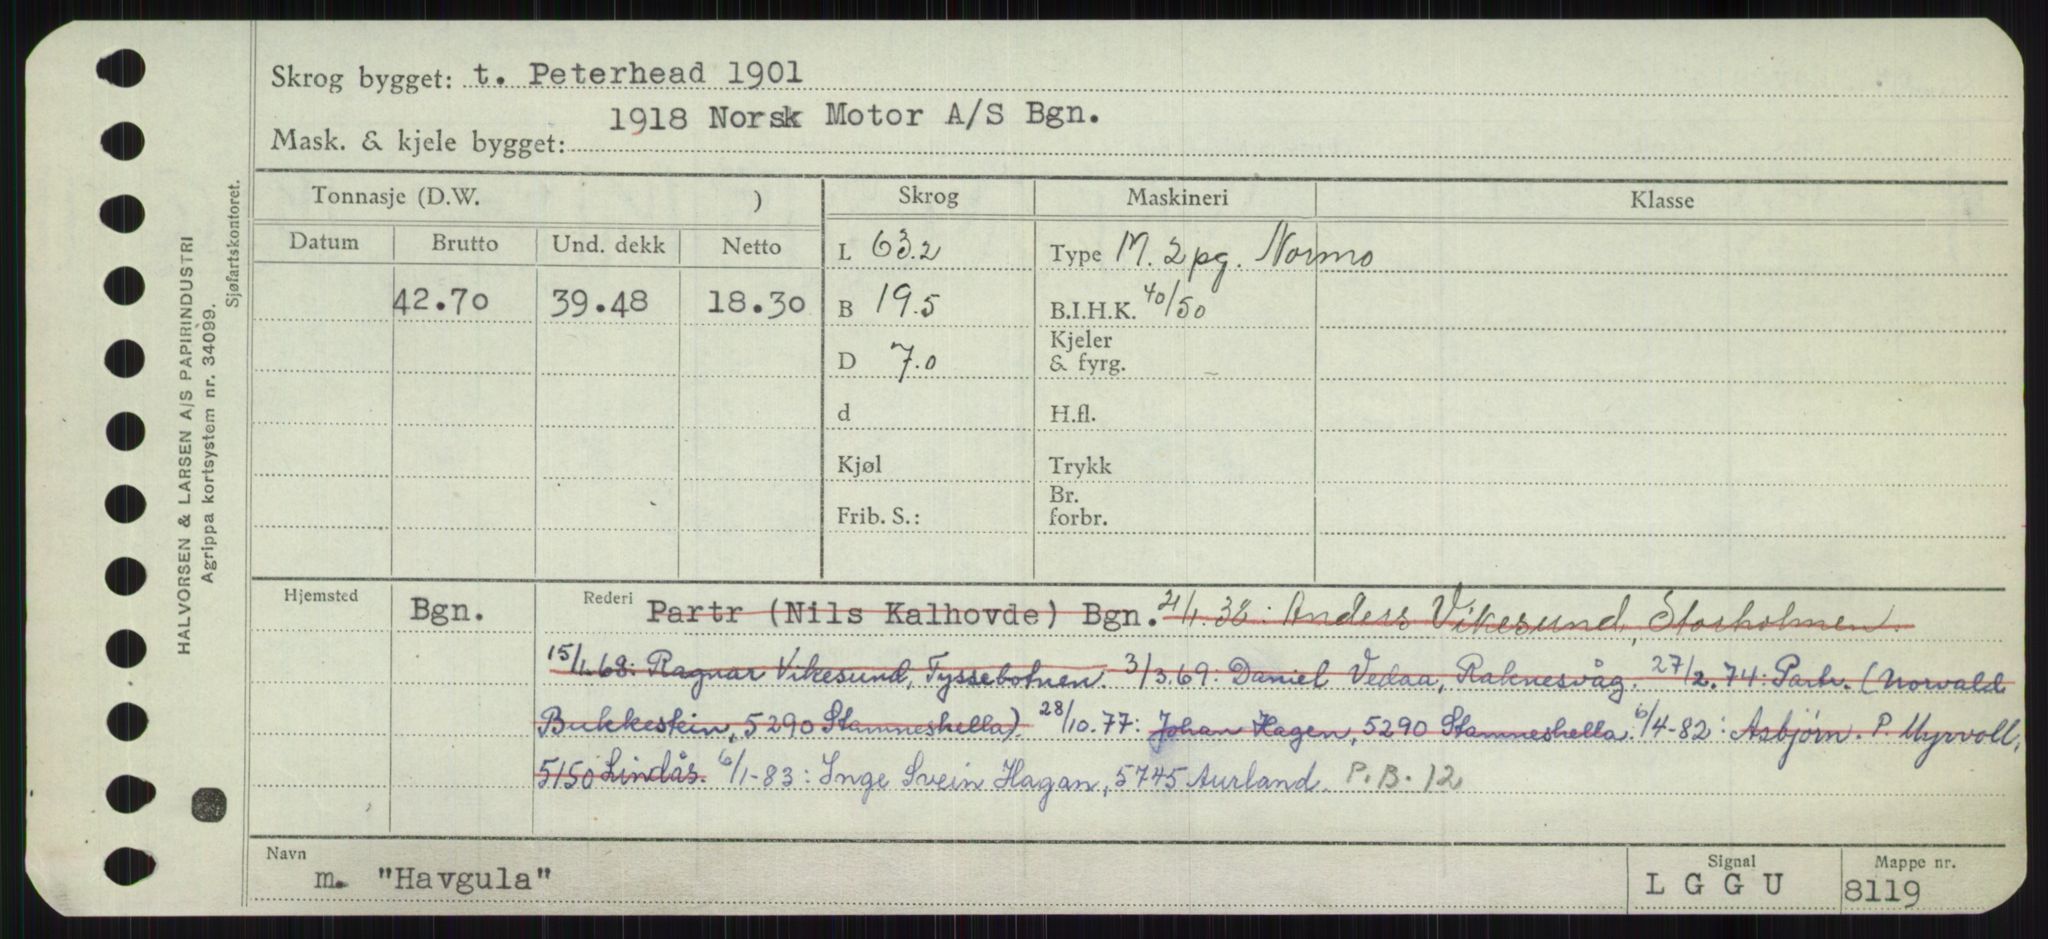 Skrog bygget: t. Peterhead 1901
1918 Norsk Motor A/S Bgn.
Mask. & kjele bygget:
Tonnasje (D.W. ) Skrog Maskineri Klasse
Datum Brutto Und. dekk Netto L 63.2 Type M. 2 pg. Normo
42.70 39.48 18.30 B 19.5 B.I.H.K. 40/50
Kjeler
D 7.0 & fyrg.
d H.fl.
Kjøl Trykk
Br.
Frib. S.: forbr.
Hjemsted Bgn. Rederi Partr (Nils Kalhovde) Bgn. 21/1.38: Anders Vikesund, Storholmen.
15/1.68: Ragnar Vikesund, Tyssebotnen. 3/3.69: Daniel Vedaa, Raknesvåg. 27/2.74: Partr. (Norvald
Bukkestein, 5290 Stamneshella). 28/10.77: Johan Hagen, 5290 Stamneshella. 6/4-82: Asbjørn. P. Myrvoll,
5150 Lindås. 6/1-83: Inge Svein Hagan, 5745 Aurland. P.B. 12
Navn Signal Mappe nr.
m. "Havgula" L G G U 8119
HALVORSEN & LARSEN A/S PAPIRINDUSTRI
Agrippa kortsystem nr. 34099.
Sjøfartskontoret.